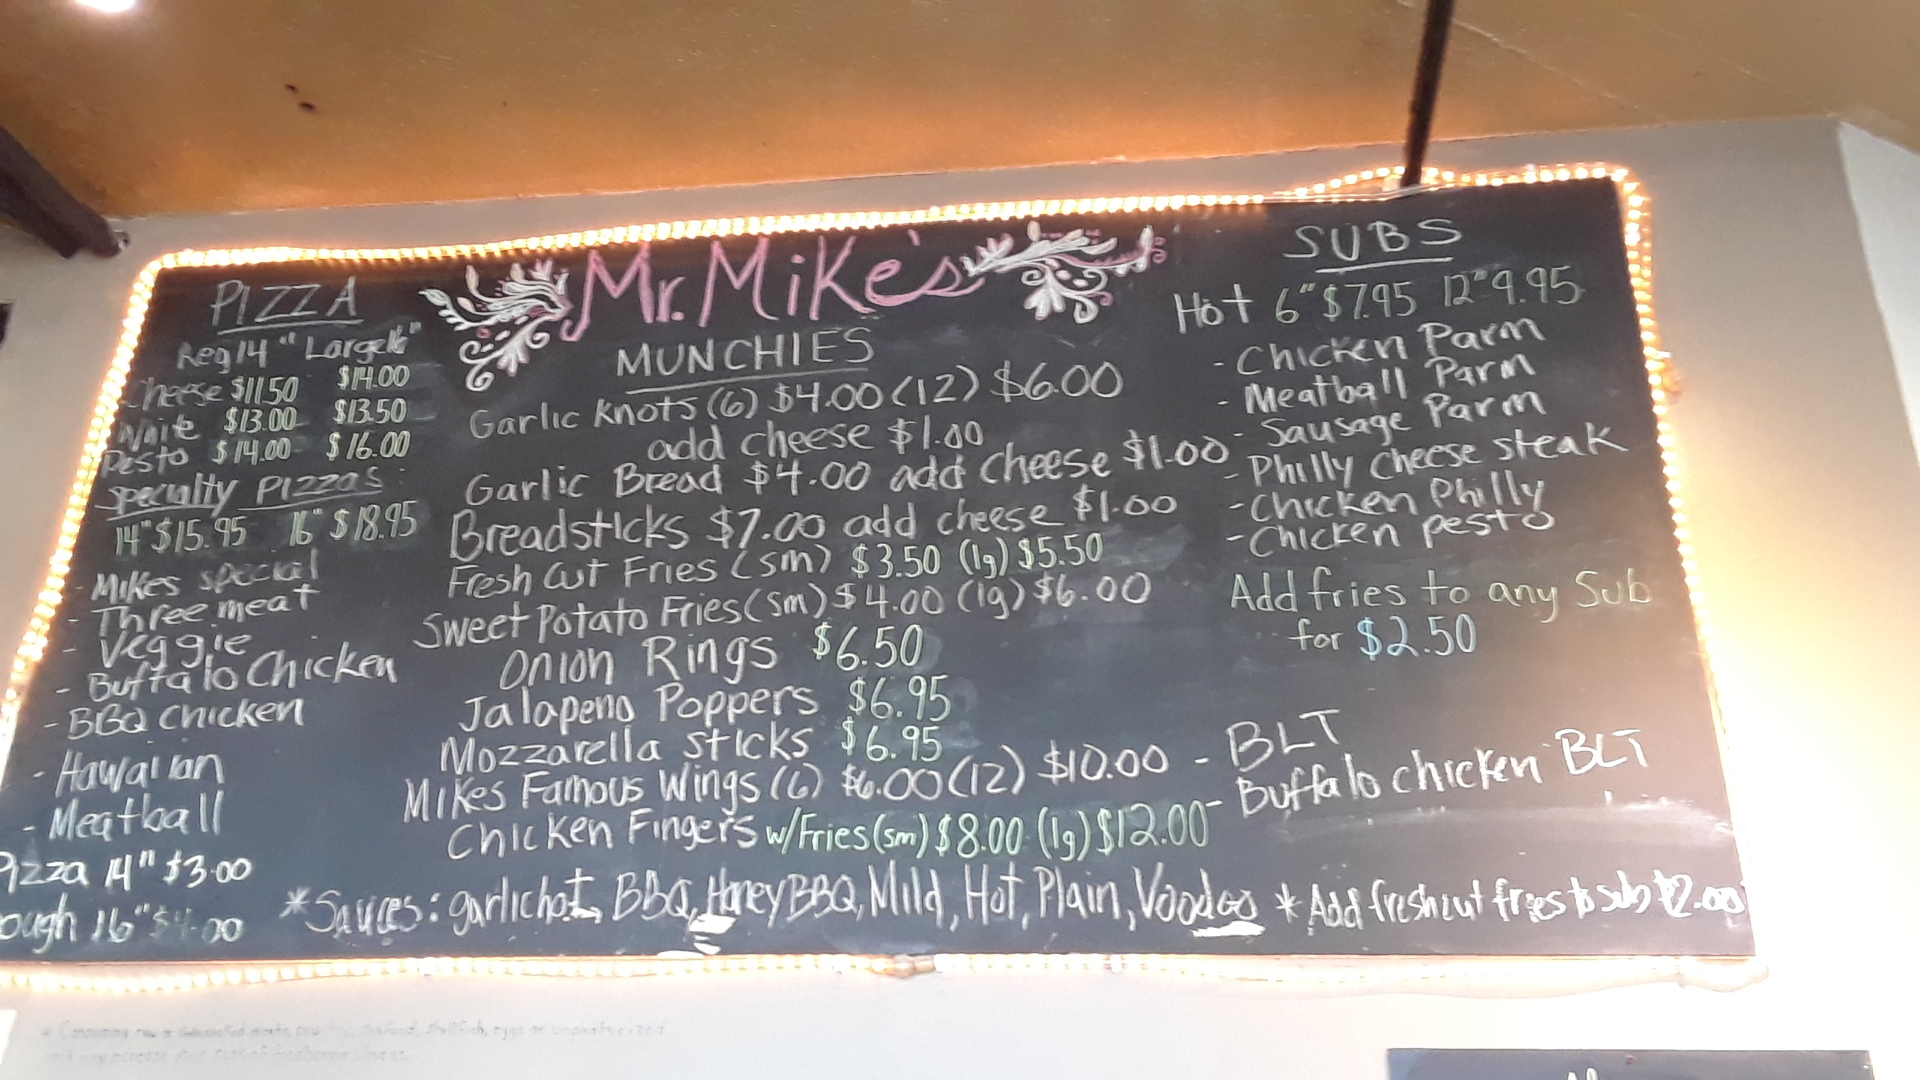 Mr. Mike's
PIZZA
Reg 14" Large 16"
Cheese $11.50 $14.00
White $13.00 $13.50
Pesto $14.00 $16.00
Specialty Pizzas
14" $15.95 16" $18.95
- Mikes special
- Three meat
- Veggie
- Buffalo Chicken
- BBQ Chicken
- Hawaiian
- Meatball
Pizza 14" $3.00
ough 16" $4.00
MUNCHIES
Garlic Knots (6) $4.00 (12) $6.00
add cheese $1.00
Garlic Bread $4.00 add cheese $1.00
Breadsticks $7.00 add cheese $1.00
Fresh Cut Fries (sm) $3.50 (lg) $5.50
Sweet Potato Fries (sm) $4.00 (lg) $6.00
Onion Rings $6.50
Jalapeno Poppers $6.95
Mozzarella sticks $6.95
Mikes Famous Wings (6) $6.00 (12) $10.00
Chicken Fingers w/Fries (sm) $8.00 (lg) $12.00
*Sauces: garlichot, BBQ, Honey BBQ, Mild, Hot, Plain, Voodoo
SUBS
Hot 6" $7.95 12" 9.95
- Chicken Parm
- Meatball Parm
- Sausage Parm
- Philly Cheese steak
- Chicken Philly
- Chicken pesto
Add fries to any Sub
for $2.50
- BLT
- Buffalo chicken BLT
* Add fresh cut fries to sub $2.00
* Consuming raw or undercooked meats, poultry, seafood, shellfish, eggs or unpasteurized
milk may increase your risk of foodborne illness.